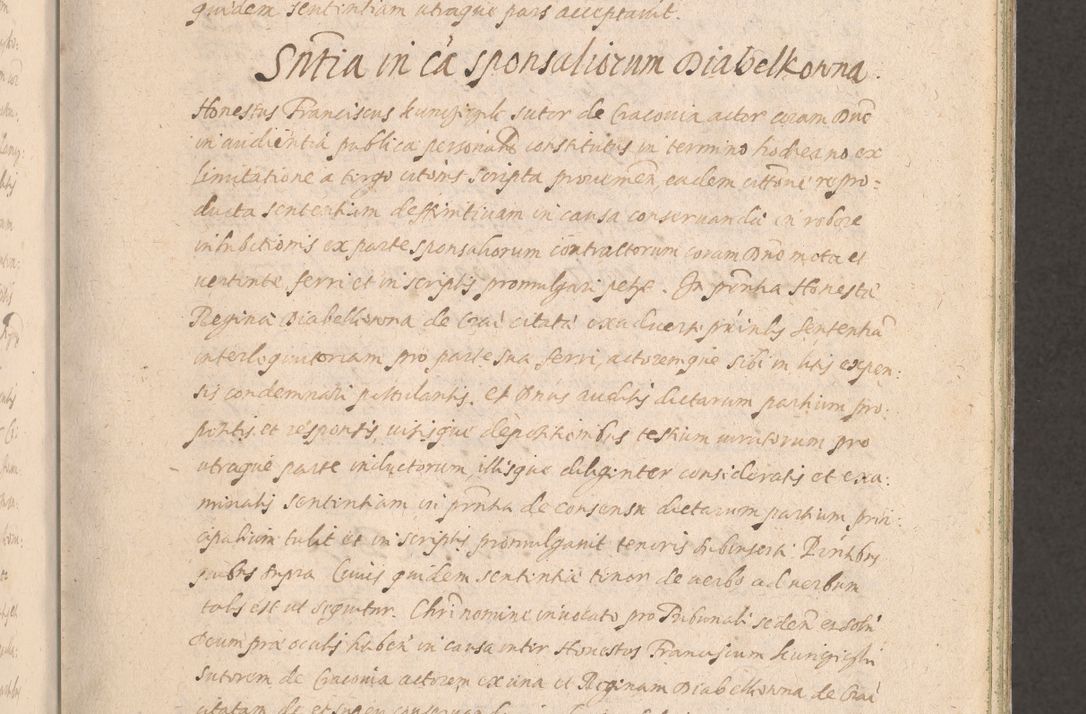 quidem sententiam utraque pars acceptavit.
Sntia in cã sponsaliorum Diabelkowna.
Honestus Franciscus sutor de Cracovia actor coram Dnõ
in audientia publica personalr constitutus in termino hodierno ex
limitatione a tergo citonis scripta provenien eadem cittõne repro=
ducta sententiam deffinitivam in causa conservandae in robore
inhibitionis ex parte sponsaliorum contractorum coram Dnõ mota et
vertente ferri et in scriptis promulgari petije. In pñtia Honestã
Regina Diabelkowna de Crac̃ citata ex adverso Sententiã
interloquutoriam pro parte sua ferri, actoremque sibi in litis expen:
sis condemnari postulantis. Et Dnus auditis dictarum partium pro:
positis et responsis, visisque depositionibus testium iuratorum pro
utraque parte inductorum illisque diligenter consideratis et exa:
minatis sententiam in pñtia de consensu dictarum partium prin:
cipalium tulit et in scriptis promulgavit tenoris subinserti. Pñtibus
quibus supra. Cuius quidem sententiae tenor de verbo ad verbum
talis est ut sequitur. Chri nomine invocato pro Tribunali seden et solũ
Deum prae oculis haben in causa inter Honestos Franciscum
Sutorem de Cracovia actorem ex una et Reginam Diabelkowna de Crac̃
citatam de et super